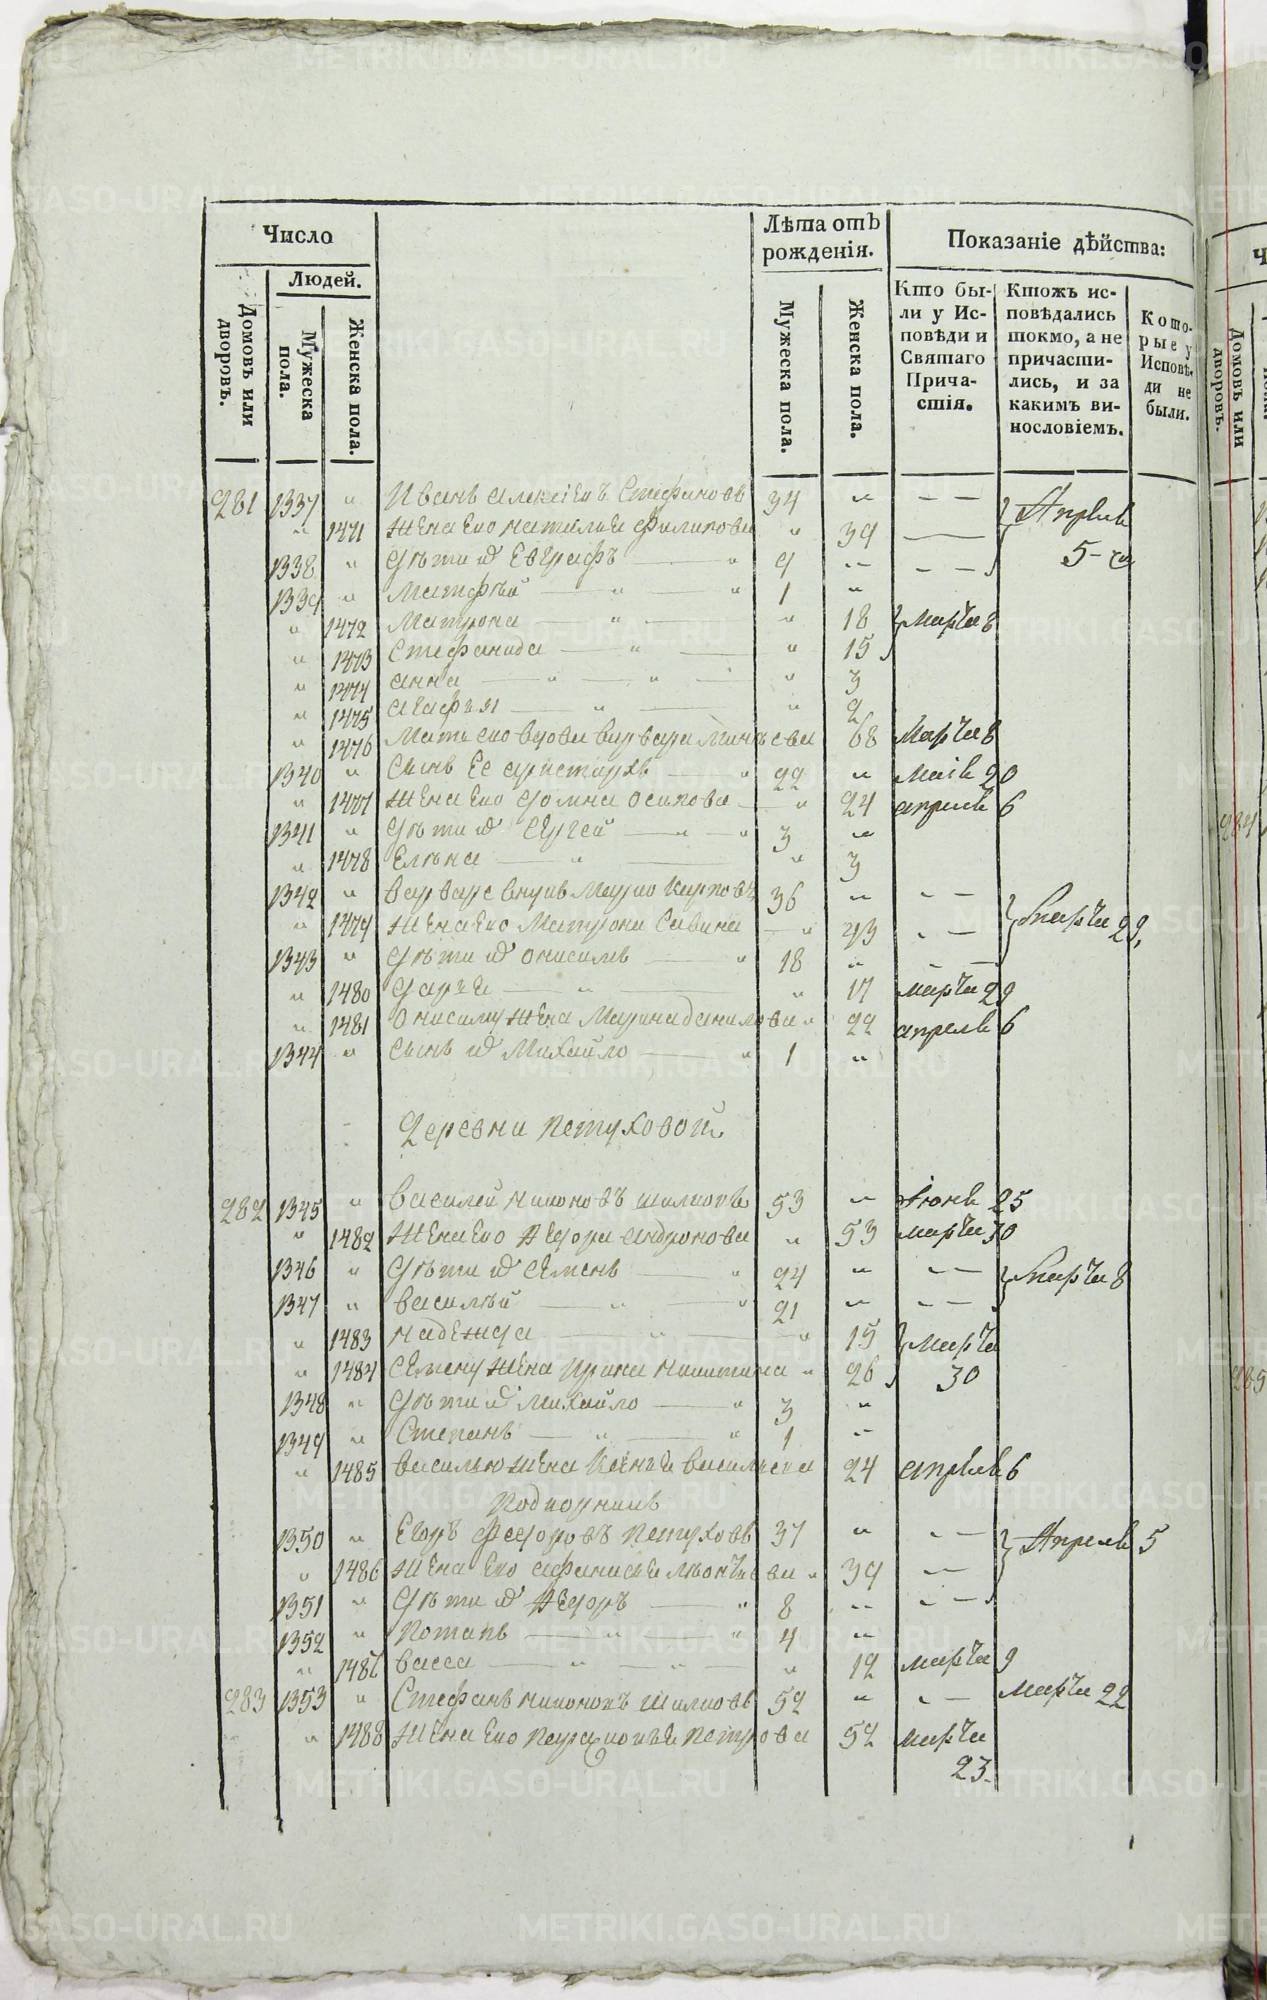 Число
Людей.
Домовъ или дворовъ.
Мужеска пола.
Женска пола.
Лѣта отъ рожденія.
Мужеска пола.
Женска пола.
Показаніе дѣйства:
Кто были у Исповѣди и Святаго Причастія.
Ктожъ исповѣдались токмо, а не причастились, и за какимъ винословіемъ.
Которые у Исповѣди не были.
281 1337 " Иванъ Алексѣевъ Стефановъ 34 " — — Апреля
" 1471 жена его Наталья Филипова " 39 — 5-го
1338 " дѣти их Евграфъ — " 9 " — —
1339 " Матфѣй — " — " 1 "
" 1472 Матрона — " — " 18 Марта 8
" 1473 Стефанида — " — " 15
" 1474 Анна — " — " — " 3
" 1475 Агафья — " — " 2
" 1476 Мать его вдова Варвара 68 Марта 8
1340 " сынъ ее Аристархъ — " 22 " Маія 20
" 1477 жена его Домна Осипова — " 24 апреля 6
1341 " дѣти их Сергей — " — " 3 "
" 1478 Елена — " — " 3
1342 " Варваре внукъ Марко Карповъ 36 " — —
" 1479 жена его Матрона Савина — " 43 " — Марта 29,
1343 " дѣти их Онисимъ — " 18 " — —
" 1480 Дарья — " — " 17 марта 29
" 1481 Онисиму жена Марина Данилова " 22 апреля 6
1344 " сынъ их Михайло — " 1 "
Деревни Петуховой
282 1345 " Василей Никоновъ 53 " Июня 25
" 1482 жена его Ѳедора Андронова " 53 марта 30
1346 " дѣти их Семенъ — " 24 " — — Марта 8
1347 " Василѣй — " — " 21 " — —
" 1483 Надежда — " — " 15 Марта
" 1484 Семену жена Ирина Никитина " 26 30
1348 " дѣти их Михайло — " 3 "
1349 " Степанъ — " — " 1 "
" 1485 Василью жена Ксенья Васильева 24 апреля 6
Подворникъ
1350 " Егоръ Федоровъ Петуховъ 37 " — — Апреля 5
" 1486 жена его Афанасья Леонтьева " 39 —
1351 " дѣти их Ѳедоръ — " 8 " — —
1352 " Потапъ — " — " 4 "
" 1486 Васса — " — " — " 12 марта 9
283 1353 " Стефанъ Никоновъ 52 " — — Марта 22
" 1488 жена его Парасковья Петрова 52 марта
23.
METRIKI.GASO-URAL.RU